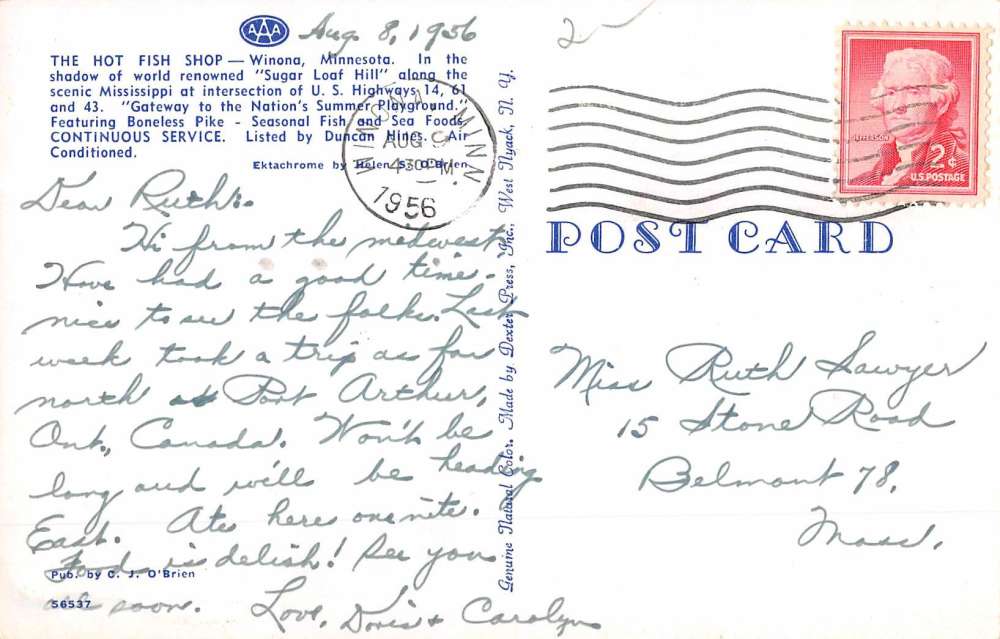 AAA
Aug. 8, 1956
THE HOT FISH SHOP — Winona, Minnesota. In the
shadow of world renowned "Sugar Loaf Hill" along the
scenic Mississippi at intersection of U. S. Highways 14, 61
and 43. "Gateway to the Nation's Summer Playground."
Featuring Boneless Pike - Seasonal Fish and Sea Foods.
CONTINUOUS SERVICE. Listed by Duncan Hines. Air
Conditioned.
Ektachrome by Helen S. O'Brien
WINONA MINN.
AUG
430 PM
1956
Dear Ruth:
Hi from the midwest
Have had a good time -
nice to see the folks. Last
week took a trip as far
north as Port Arthur,
Ont., Canada. Won't be
long and will be heading
East. Ate here one nite.
Food is delish! See you
all soon. Love, Doris & Carolyn
Pub. by C. J. O'Brien
56537
Genuine Natural Color. Made by Dexter Press, Inc., West Nyack, N. Y.
2
JEFFERSON
2¢
U.S. POSTAGE
POST CARD
Miss Ruth Sawyer
15 Stone Road
Belmont 78,
Mass.